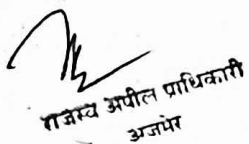 राजस्व अपील प्राधिकारी
अजमेर